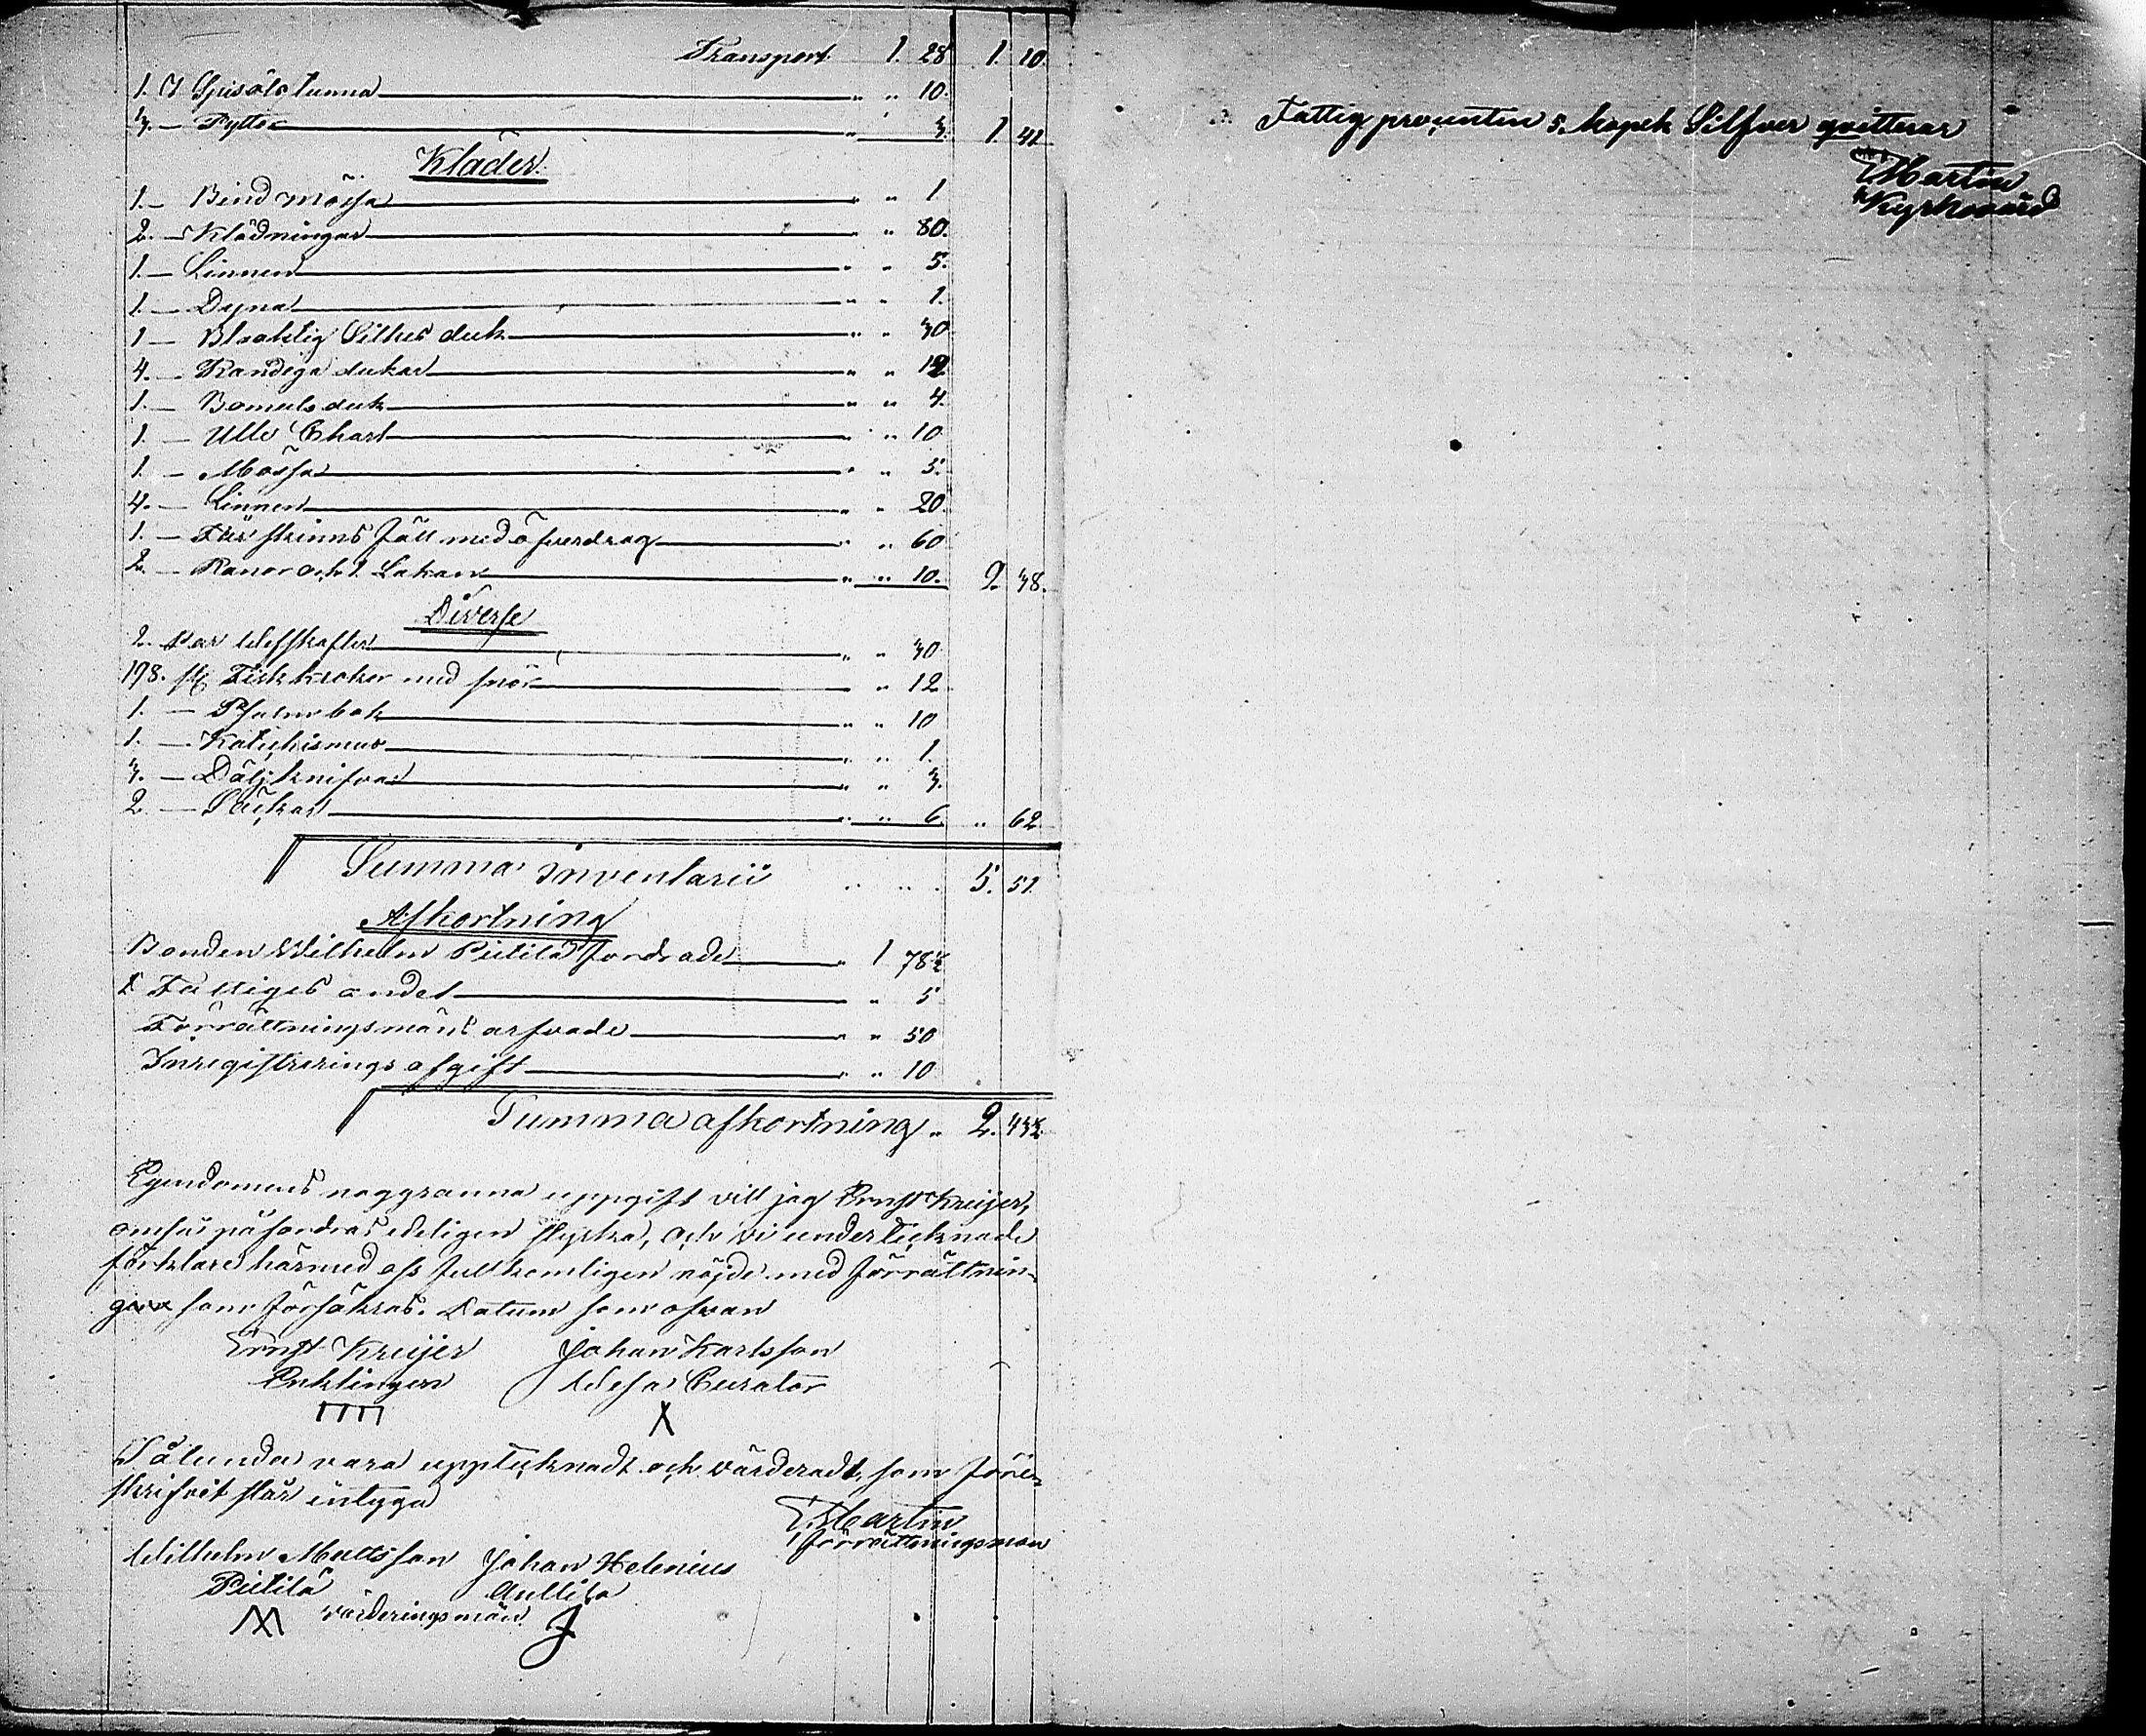 Transport 1. 28 1. 10.
1. st Spisöls tunna " " 10.
3. — Byttor " " 3. 1. 41
Kläder.
1. — Bindmössa " " 1
2. — Klädningar " " 80.
1. — Linnen " " 5.
1. — Dyna " " 1.
1 — Blaaktig Silkes duk " " 30
4. — Randiga dukar " " 12
1. — Bomuls duk " " 4.
1. — Ulle Charl " " 10
1. — Mössa " " 5.
4. — Linnen " " 20.
1. — Fårskinns fäll med öfverdrag " " 60
2. — Ranor och 1. Lakan " " 10. 2. 38.
Diverse
2. Par Wefskaftor " " 30
198. st. Fiskkrokor med snör " " 12
1. — Psalmbok " " 10
1. — Katichismus " " 1.
3. — Däljknifvar " " 3.
2. — Säckar " " 6. " 62
Summa inventarii " " . 5. 51
Afkortning
Bonden Wilhelm Pietilä fordrade " 1 78½
Fattiges andel " " 5
Förrättningsmäns arfvode " " 50
Inregistrerings afgift " " 10
Summa afkortning " 2. 43½
Egendomens noggranna uppgift vill jag Ernst Kreijer,
omså påfordras edeligen styrka, och vi undertecknade
förklare härmed oss fullkomligen nöjde med förrättnin-
gen som försäkras. Datum som ofvan
Ernst Kreijer Johan Karlsson
Enklingen Wesa Curator
Sålunda vara upptecknadt och värderadt, som före-
skrifvit står intyga
E Martin
förrättningsman
Wilhelm Mattsson Johan Helenius
Pietilä Anttila
värderingsmän.
J
Fattig procenten 5. kopek Silfver qvitterar
E Martin
Kyrkovärd